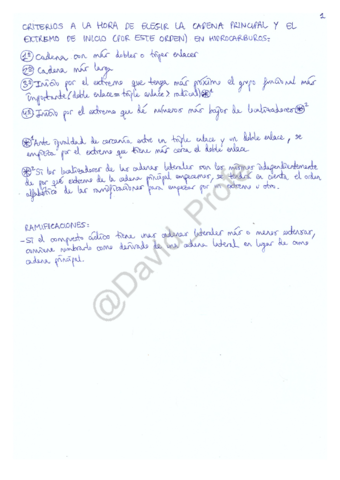 1
CRITERIOS A LA HORA DE ELEGIR LA CADENA PRINCIPAL Y EL
EXTREMO DE INICIO (POR ESTE ORDEN) EN HIDROCARBUROS:
1º Cadena con más dobles o triples enlaces
2º Cadena más larga
3º Inicio por el extremo que tenga más próximo el grupo funcional más
importante (doble enlace = triple enlace > radical) *1
4º Inicio por el extremo que dé números más bajos de localizadores *2
*1 Ante igualdad de cercanía entre un triple enlace y un doble enlace, se
empieza por el extremo que tiene más cerca el doble enlace
*2 Si los localizadores de las cadenas laterales son los mismos independientemente
de por qué extremo de la cadena principal empecemos, se tendrá en cuenta el orden
alfabético de las ramificaciones para empezar por un extremo u otro.
RAMIFICACIONES:
- Si el compuesto cíclico tiene unas cadenas laterales más o menos extensas,
conviene nombrarlo como derivado de una cadena lateral en lugar de como
cadena principal.
@David_Profe